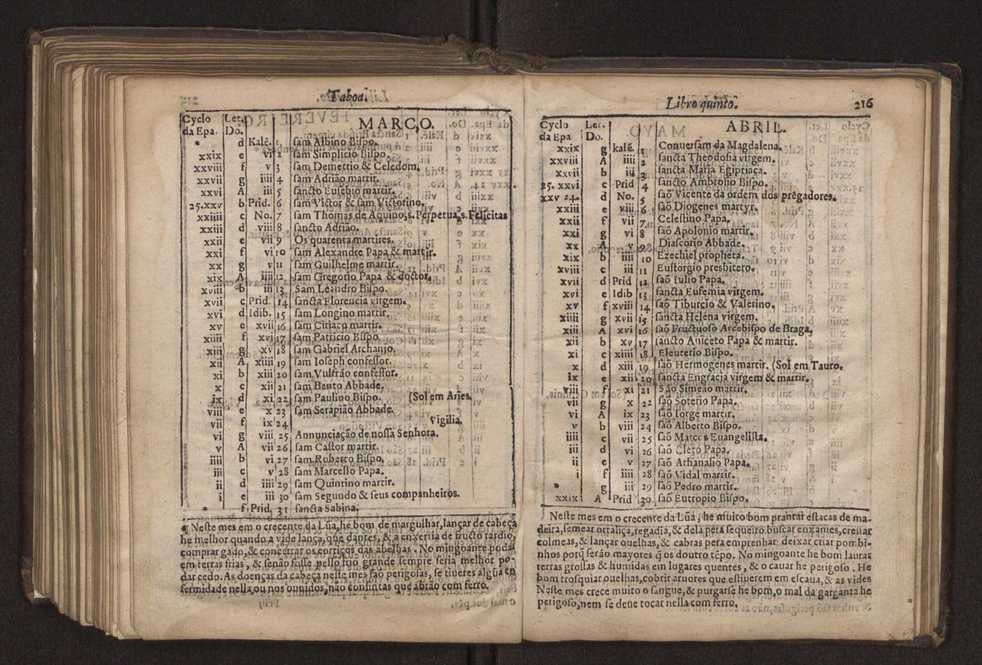 Taboa.
Cyclo da Epa. Let. Do. MARÇO.
* d Kalẽ. 1 sam Albino Bispo.
xxix e vi 2 sam Simplicio Bispo.
xxviii f v 3 sam Demettio & Celedom.
xxvii g iiii 4 sam Adrião martir.
xxvi A iii 5 sancto Eusebio martir.
25.xxv b Prid. 6 sam Victor & sam Victorino.
xxiiii c No. 7 sam Thomas de Aquino, s. Perpetua, s. Felicitas
xxiii d viii 8 sancto Adrião.
xxii e vii 9 Os quarenta martires.
xxi f vi 10 sam Alexandre Papa & martir.
xx g v 11 sam Guilhelme martir.
xix A iiii 12 sam Gregorio Papa & doctor.
xviii b iii 13 Sam Leandro Bispo.
xvii c Prid. 14 sancta Florencia virgem.
xvi d Idib. 15 sam Longino martir.
xv e xvii 16 sam Ciriaco martir.
xiiii f xvi 17 sam Patricio Bispo.
xiii g xv 18 sam Gabriel Archanjo.
xii A xiiii 19 sam Ioseph confessor.
xi b xiii 20 sam Vulfrão confessor.
x c xii 21 sam Bento Abbade.
ix d xi 22 sam Paulino Bispo. (Sol em Aries.
viii e x 23 sam Serapião Abbade.
vii f ix 24 Vigilia.
vi g viii 25 Annunciação de nossa Senhora.
v A vii 26 sam Castor martir.
iiii b vi 27 sam Roberto Bispo.
iii c v 28 sam Marcello Papa.
ii d iiii 29 sam Quintino martir.
i e iii 30 sam Segundo & seus companheiros.
* f Prid. 31 sancta Sabina.
¶ Neste mes em o crecente da Lũa, he bom de margulhar, lançar de cabeça
he melhor quando a vide lança, que dantes, & a enxertia de fructo tardio,
comprar gado, & concertar os cortiços das abelhas. No mingoante poda
em terras frias, & senão fosse pello frio grande sempre seria melhor po-
dar cedo. As doenças da cabeça neste mes são perigosas, se tiueres algũa en
fermidade nella, ou nos ouuidos, não consintas que abrão com ferro.
Libro quinto. 216
Cyclo da Epa. Let. Do. ABRIL.
xxix g kalẽ. 1 Conuersam da Magdalena.
xxviii A iiii 2 sancta Theodosia virgem.
xxvii b iii 3 sancta Maria Egiptiaca.
25. xxvi c Prid 4 sancto Ambrosio Bispo.
xxv 24. d No. 5 são Vicente da ordem dos prègadores.
xxiii e viii 6 são Diogenes martyr.
xxii f vii 7 Celestino Papa.
xxi g vi 8 são Apolonio martir.
xx A v 9 Diascorio Abbade.
xix b iiii 10 Ezechiel propheta.
xviii c iii 11 Eustorgio presbitero.
xvii d Prid 12 são Iulio Papa.
xvi e Idib 13 sancta Eufemia virgem.
xv f xviii 14 são Tiburcio & Valerino.
xiiii g xvii 15 sancta Helena virgem.
xiii A xvi 16 são Fructuoso Arcebispo de Braga.
xii b xv 17 sancto Aniceto Papa & martir.
xi c xiiii 18 Eleuterio Bispo.
x d xiii 19 são Hermogenes martir. (Sol em Tauro.
ix e xii 20 sancta Engracia virgem & martir.
viii f xi 21 São Simeão martir.
vii g x 22 são Soterio Papa.
vi A ix 23 são Iorge martir.
v b viii 24 são Alberto Bispo.
iiii c vii 25 são Marcos Euangelista.
iii d vi 26 são Cleto Papa.
ii e v 27 são Athanasio Papa.
i f iiii 28 são Vidal martir.
* g iii 29 são Pedro martir.
xxix A Prid 30 são Eutropio Bispo.
Neste mes em o crecente da Lũa, he muito bom prantar estacas de ma-
deira, semear ortaliça, regadia, & de la pera sequeiro buscar enxames, crestar
colmeas, & lançar ouelhas, & cabras pera emprenhar deixar criar pombi-
nhos porq̃ serão mayores q̃ os doutro tẽpo. No mingoante he bom laurar
terras grossas & humidas em lugares quentes, & o cauar he perigoso. He
bom trosquiar ouelhas, cobrir aruores que estiuerem em escaua, & as vides
Neste mes crece muito o sangue, & purgarse he bom, o mal da garganta he
perigoso, nem se deue tocar nella com ferro.